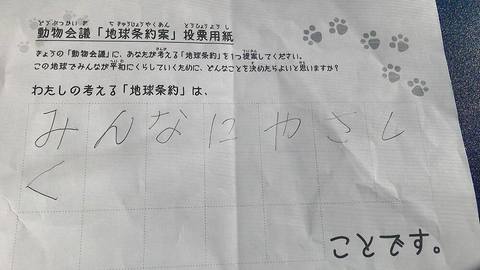 動物会議「地球条約案」投票用紙
きょうの「動物会議」に、あなたが考える「地球条約」を1つ提案してください。
この地球でみんなが平和にくらしていくために、どんなことを決めたらよいと思いますか?
わたしの考える「地球条約」は、
みんなにやさし
く
ことです。